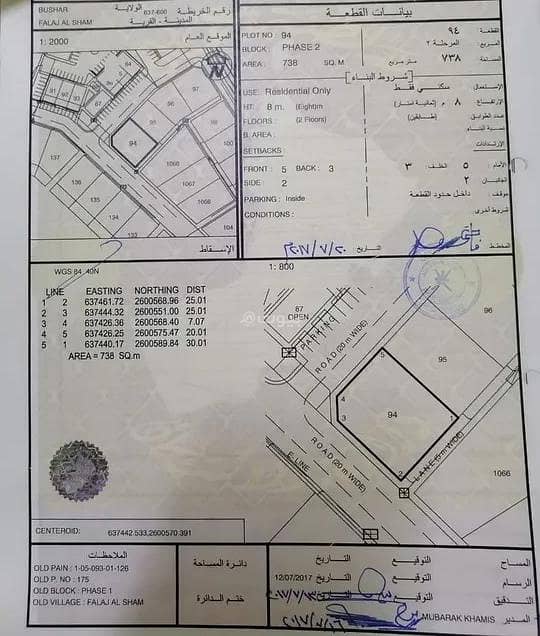 BUSHAR
637-600
رقم الخريطة
الولاية
FALAJ AL SHAM
المدينة - القرية
1: 2000
الموقع العام
97
96
95
94
137
136
135
134
133
1066
1067
1068
100
104
الإسقاط
بيانات القطعة
PLOT NO : 94
٩٤
القطعة
BLOCK : PHASE 2
المرحلة ٢
المربع
AREA : 738 SQ. M
متر مربع
٧٣٨
المساحة
شروط البناء
USE: Residential Only
سكني فقط
الإستعمال
HT: 8 m. (Eight)m
٨ م (ثمانية امتار)
الإرتفاع
FLOORS : (2 Floors)
(طابقين)
عدد الطوابق
B. AREA :
نسبة البناء
SETBACKS :
الإرتدادات
FRONT : 5 BACK : 3
٣
الخلف
٥
الأمام
SIDE : 2
٢
الجانبان
PARKING : Inside
داخل حدود القطعة
موقف
CONDITIONS :
شروط اخرى
المخطط
التاريخ
٢٠١٧/٧/٢٠
WGS 84_40N
1: 800
LINE EASTING NORTHING DIST
1 2 637461.72 2600568.96 25.01
2 3 637444.32 2600551.00 25.01
3 4 637426.36 2600568.40 7.07
4 5 637426.25 2600575.47 20.01
5 1 637440.17 2600589.84 30.01
AREA = 738 SQ.m
87
OPEN
PARKING
ROAD (20 m WIDE)
96
95
5
4
3
94
1
2
ROAD (20 m WIDE)
E. LINE
LANE (5 m WIDE)
1066
CENTEROID: 637442.533,2600570.391
الملاحظات
OLD PAIN : 1-05-093-01-126
OLD P. NO : 175
OLD BLOCK : PHASE 1
OLD VILLAGE : FALAJ AL SHAM
دائرة المساحة
ختم الدائرة
التاريخ
التوقيع
المساح
12/07/2017
التاريخ
التوقيع
الرسام
التاريخ
التوقيع
التدقيق
MUBARAK KHAMIS
المدير